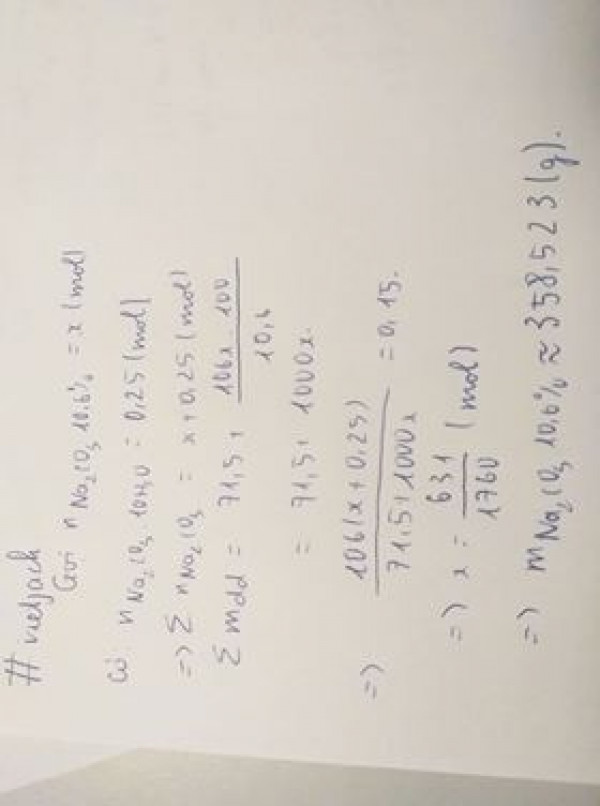 # vietjach
Gọi n Na₂CO₃ 10.6% = x (mol)
Có n Na₂CO₃.10H₂O = 0,25 (mol)
=> Σ n Na₂CO₃ = x + 0,25 (mol)
Σ mdd = 71,5 + 106x . 100 / 10,6
= 71,5 + 1000x.
=> 106(x + 0,25) / 71,5 + 1000x = 0,15.
=> x = 631 / 1760 (mol)
=> m Na₂CO₃ 10,6% ≈ 358,523 (g).